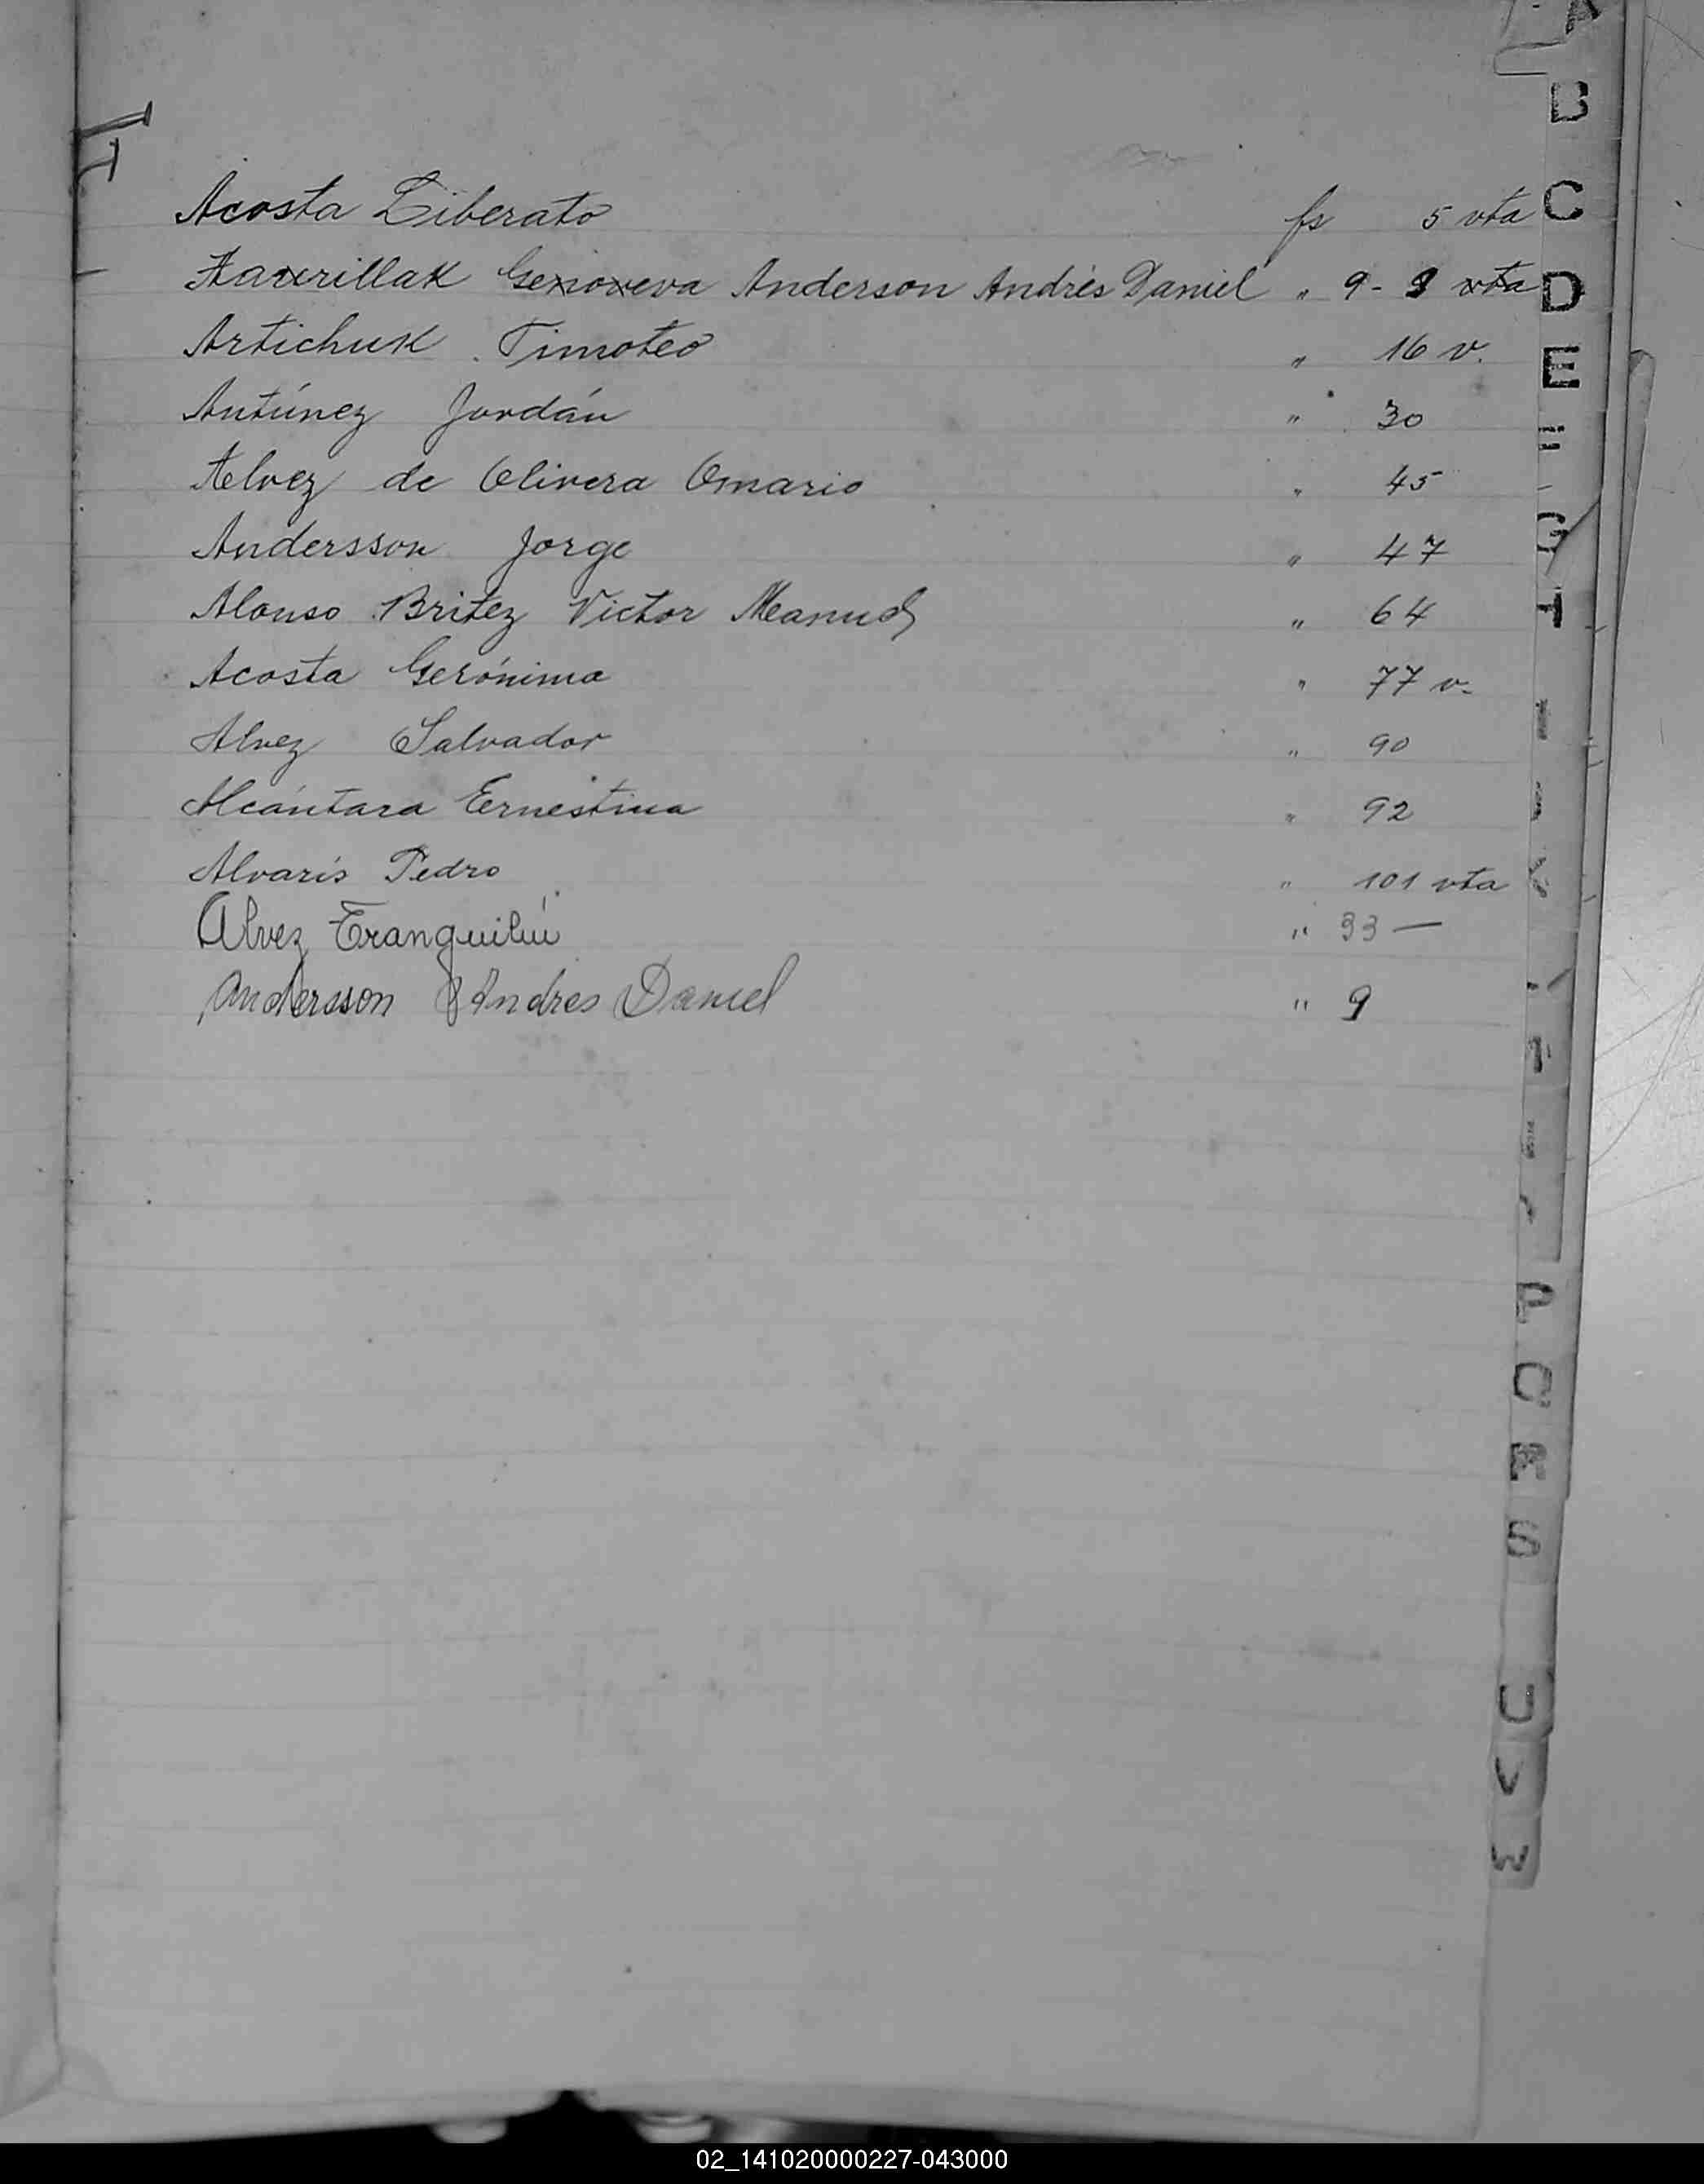 Acosta Liberato fs 5 vta
Genoveva Anderson Andrés Daniel " 9- 9 vta
Artichuk Timoteo " 16 v.
Antúnez Jordán " 30
Alvez de Olivera Omario " 45
Andersson Jorge " 47
Alonso Britez Victor Manuel " 64
Acosta Gerónima " 77 v.
Alvez Salvador " 90
Alcántara Ernestina " 92
Alvarís Pedro " 101 vta
Alvez " 33 —
Andersson Andres Daniel " 9
A
B
C
D
E
F
G
P
Q
R
S
U
V
W
02_141020000227-043000